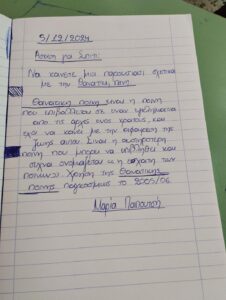 5/12/2024
Άσκηση για Σπίτι:
Να κάνετε μια παρουσίαση σχετικά
με την Θανατική ποινή.
Θανατική ποινή είναι η ποινή
που επιβάλλεται σε έναν
από τις αρχές ενός κράτους, και
έχει να κάνει με την αφαίρεση της
ζωής αυτού. Είναι η αυστηρότερη
ποινή που μπορεί να επιβληθεί και
συχνά ονομάζεται η εσχάτη των
ποινών. Χρήση της Θανατικής
ποινής παγκοσμίως το 2005/06.
Μαρία